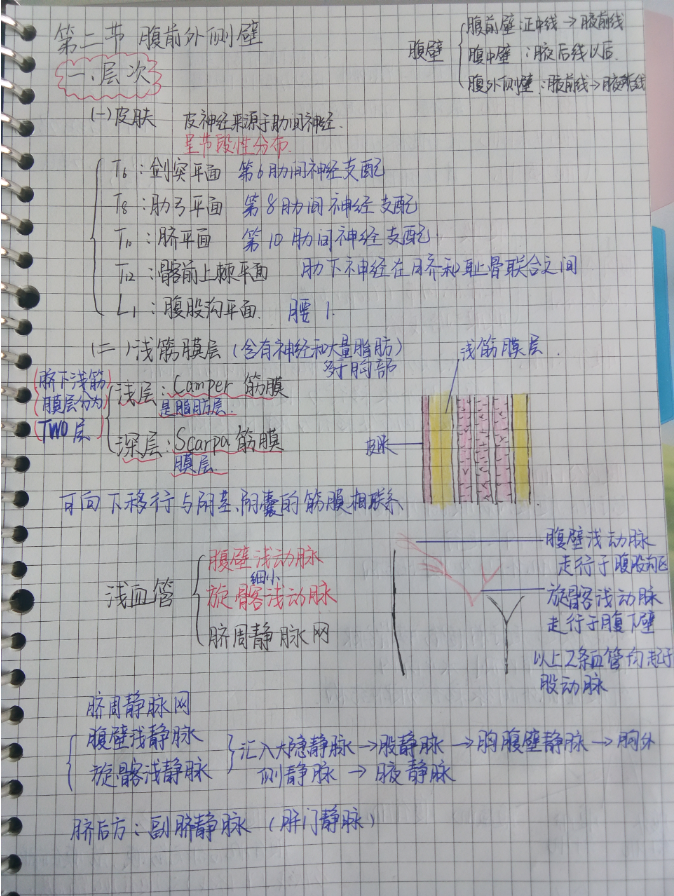 第二节 腹前外侧壁
腹壁
腹前壁:正中线→腋前线
腹中壁:腋后线以后
腹外侧壁:腋前线→腋后线
一.层次
(一)皮肤 皮神经来源于肋间神经.
呈节段性分布.
T6:剑突平面 第6肋间神经支配
T8:肋弓平面 第8肋间神经支配
T10:脐平面 第10肋间神经支配
T12:髂前上棘平面 肋下神经在脐和耻骨联合之间
L1:腹股沟平面. 腰1.
(二)浅筋膜层(含有神经和大量脂肪)
对胸部
浅筋膜层.
脐下浅筋
膜层分为
TWO层
浅层:Camper筋膜
是脂肪层.
深层:Scarpa筋膜
膜层.
皮肤
可向下移行与阴茎、阴囊的筋膜相联系
浅血管
腹壁浅动脉
细小
旋髂浅动脉
脐周静脉网
腹壁浅动脉
走行于腹股沟区
旋髂浅动脉
走行于腹下壁
以上2条血管均起于
股动脉
脐周静脉网
腹壁浅静脉
旋髂浅静脉
汇入大隐静脉→股静脉→胸腹壁静脉→胸外
侧静脉→腋静脉
脐后方:副脐静脉(肝门静脉)